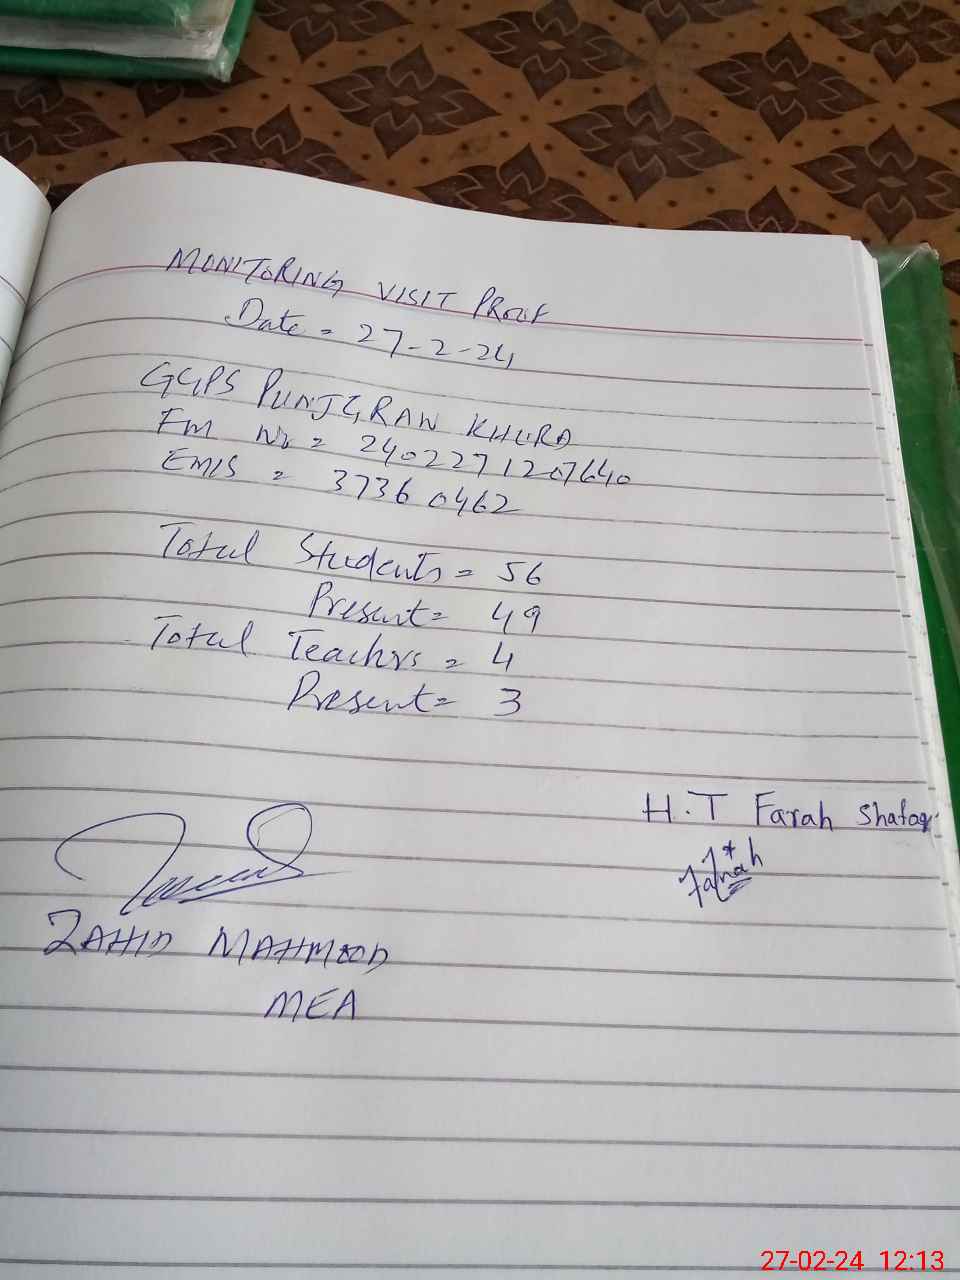 MONITORING VISIT PROOF
Date = 27-2-24
GGPS PUNJGRAN KHURD
FM No = 2402271207640
EMIS = 37360462
Total Students = 56
Present = 49
Total Teachrs = 4
Present = 3
H.T Farah Shafaq
Farah
ZAHID MAHMOOD
MEA
27-02-24 12:13